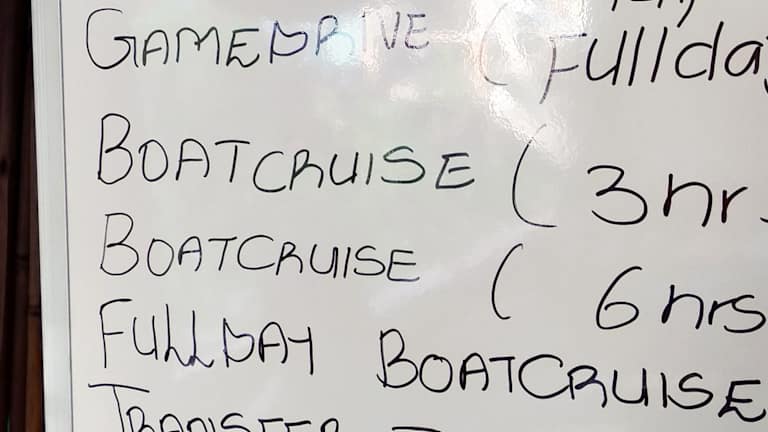 GAMEDRIVE ( Fullda
BOATCRUISE ( 3hr
BOATCRUISE ( 6hrs
FULLDAY BOATCRUISE
TRANSFER